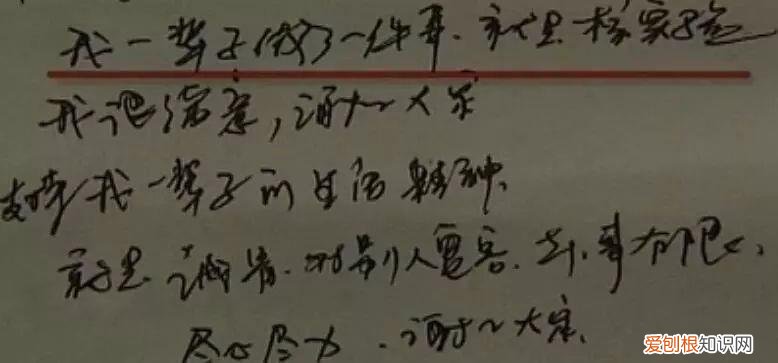 我一辈子做了一件事.就是核实验
我很满意,谢谢大家
支持我一辈子的生活精神.
就是诚肯.对别人宽容.事有
尽心尽力.谢谢大家.
爱刨根知识网